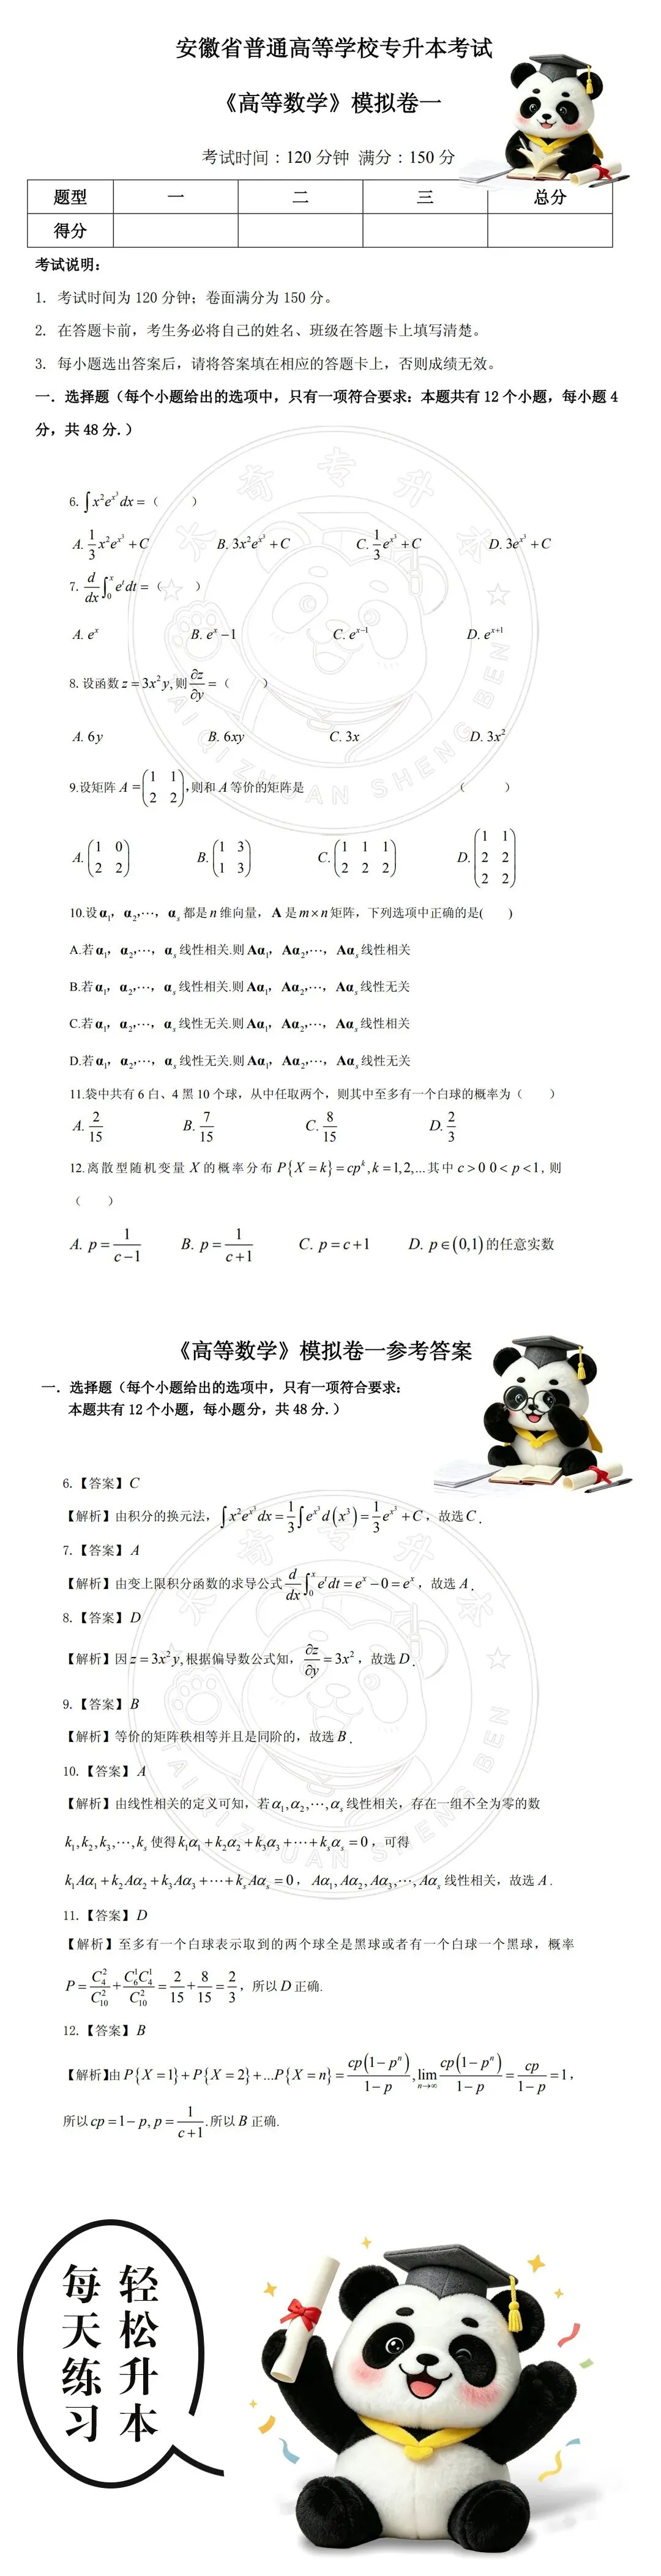 安徽省普通高等学校专升本考试
《高等数学》模拟卷一
考试时间：120 分钟 满分：150 分
题型 一 二 三 总分
得分
考试说明：
1. 考试时间为 120 分钟；卷面满分为 150 分。
2. 在答题卡前，考生务必将自己的姓名、班级在答题卡上填写清楚。
3. 每小题选出答案后，请将答案填在相应的答题卡上，否则成绩无效。
一．选择题（每个小题给出的选项中，只有一项符合要求：本题共有 12 个小题，每小题 4
分，共 48 分.）
6. ∫x²e^{x³}dx =（ ）
A. 1/3 x²e^{x³}+C B. 3x²e^{x³}+C C. 1/3 e^{x³}+C D. 3e^{x³}+C
7. d/dx ∫₀ˣ eᵗdt =（ ）
A. eˣ B. eˣ−1 C. e^{x−1} D. e^{x+1}
8. 设函数 z = 3x²y, 则 ∂z/∂y =（ ）
A. 6y B. 6xy C. 3x D. 3x²
9.设矩阵 A = (1 1; 2 2),则和 A 等价的矩阵是 （ ）
A. (1 0; 2 2) B. (1 3; 1 3) C. (1 1 1; 2 2 2) D. (1 1; 2 2; 2 2)
10.设 α₁，α₂,⋯，αₛ 都是 n 维向量，A 是 m×n 矩阵，下列选项中正确的是( )
A.若 α₁，α₂,⋯，αₛ 线性相关.则 Aα₁，Aα₂,⋯，Aαₛ 线性相关
B.若 α₁，α₂,⋯，αₛ 线性相关.则 Aα₁，Aα₂,⋯，Aαₛ 线性无关
C.若 α₁，α₂,⋯，αₛ 线性无关.则 Aα₁，Aα₂,⋯，Aαₛ 线性相关
D.若 α₁，α₂,⋯，αₛ 线性无关.则 Aα₁，Aα₂,⋯，Aαₛ 线性无关
11.袋中共有 6 白、4 黑 10 个球，从中任取两个，则其中至多有一个白球的概率为（ ）
A. 2/15 B. 7/15 C. 8/15 D. 2/3
12.离散型随机变量 X 的概率分布 P{X = k} = cpᵏ, k = 1,2,... 其中 c > 0 0 < p < 1, 则
（ ）
A. p = 1/(c−1) B. p = 1/(c+1) C. p = c+1 D. p∈(0,1) 的任意实数
太奇专升本
TAIQIZHUAN SHENG BEN
《高等数学》模拟卷一参考答案
一．选择题（每个小题给出的选项中，只有一项符合要求：
本题共有 12 个小题，每小题分，共 48 分.）
6.【答案】C
【解析】由积分的换元法，∫x²e^{x³}dx = 1/3 ∫e^{x³}d(x³) = 1/3 e^{x³}+C，故选 C .
7.【答案】A
【解析】由变上限积分函数的求导公式 d/dx ∫₀ˣ eᵗdt = eˣ−0 = eˣ，故选 A .
8.【答案】D
【解析】因 z = 3x²y, 根据偏导数公式知，∂z/∂y = 3x²，故选 D .
9.【答案】B
【解析】等价的矩阵秩相等并且是同阶的，故选 B .
10.【答案】A
【解析】由线性相关的定义可知，若 α₁,α₂,⋯,αₛ 线性相关，存在一组不全为零的数
k₁,k₂,k₃,⋯,kₛ 使得 k₁α₁+k₂α₂+k₃α₃+⋯+kₛαₛ = 0，可得
k₁Aα₁+k₂Aα₂+k₃Aα₃+⋯+kₛAαₛ = 0，Aα₁,Aα₂,Aα₃,⋯,Aαₛ 线性相关，故选 A .
11.【答案】D
【解析】至多有一个白球表示取到的两个球全是黑球或者有一个白球一个黑球，概率
P = C₄²/C₁₀² + C₆¹C₄¹/C₁₀² = 2/15 + 8/15 = 2/3，所以 D 正确.
12.【答案】B
【解析】由 P{X = 1}+P{X = 2}+...P{X = n} = cp(1−pⁿ)/(1−p), lim_{n→∞} cp(1−pⁿ)/(1−p) = cp/(1−p) = 1，
所以 cp = 1−p, p = 1/(c+1) .所以 B 正确.
太奇专升本
TAIQIZHUAN SHENG BEN
轻松升本
每天练习